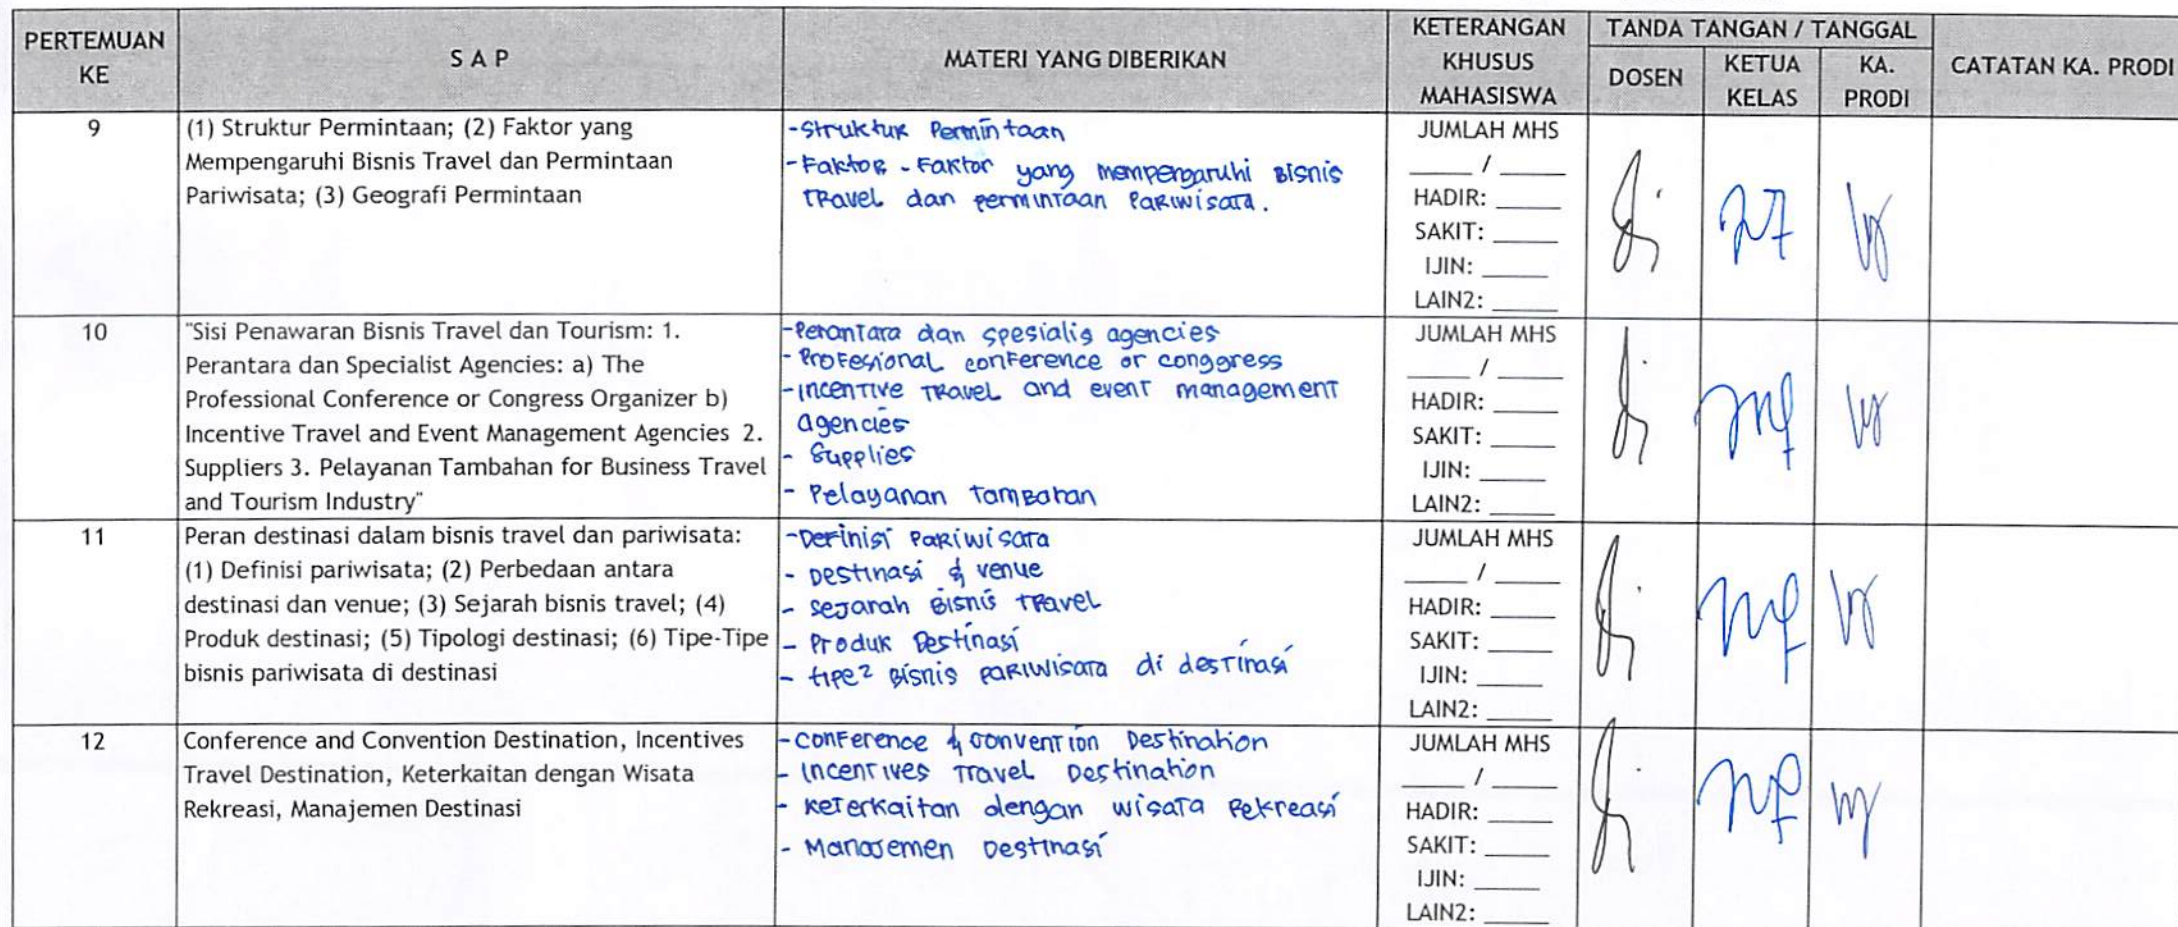 PERTEMUAN KE
S A P
MATERI YANG DIBERIKAN
KETERANGAN KHUSUS MAHASISWA
TANDA TANGAN / TANGGAL
DOSEN
KETUA KELAS
KA. PRODI
CATATAN KA. PRODI
9
(1) Struktur Permintaan; (2) Faktor yang
Mempengaruhi Bisnis Travel dan Permintaan
Pariwisata; (3) Geografi Permintaan
- Struktur Permintaan
- Faktor - Faktor yang mempengaruhi Bisnis
Travel dan permintaan Pariwisata.
JUMLAH MHS
____ / ____
HADIR: ____
SAKIT: ____
IJIN: ____
LAIN2: ____
10
"Sisi Penawaran Bisnis Travel dan Tourism: 1.
Perantara dan Specialist Agencies: a) The
Professional Conference or Congress Organizer b)
Incentive Travel and Event Management Agencies 2.
Suppliers 3. Pelayanan Tambahan for Business Travel
and Tourism Industry"
- Perantara dan spesialis agencies
- Profesional conference or conggress
- incentive Travel and event management
agencies
- Supplies
- Pelayanan tambahan
JUMLAH MHS
____ / ____
HADIR: ____
SAKIT: ____
IJIN: ____
LAIN2: ____
11
Peran destinasi dalam bisnis travel dan pariwisata:
(1) Definisi pariwisata; (2) Perbedaan antara
destinasi dan venue; (3) Sejarah bisnis travel; (4)
Produk destinasi; (5) Tipologi destinasi; (6) Tipe-Tipe
bisnis pariwisata di destinasi
- Definisi Pariwisata
- Destinasi & venue
- Sejarah Bisnis travel
- Produk Destinasi
- tipe2 Bisnis pariwisata di destinasi
JUMLAH MHS
____ / ____
HADIR: ____
SAKIT: ____
IJIN: ____
LAIN2: ____
12
Conference and Convention Destination, Incentives
Travel Destination, Keterkaitan dengan Wisata
Rekreasi, Manajemen Destinasi
- Conference & convention Destination
- Incentives Travel Destination
- keterkaitan dengan wisata Rekreasi
- Manajemen Destinasi
JUMLAH MHS
____ / ____
HADIR: ____
SAKIT: ____
IJIN: ____
LAIN2: ____